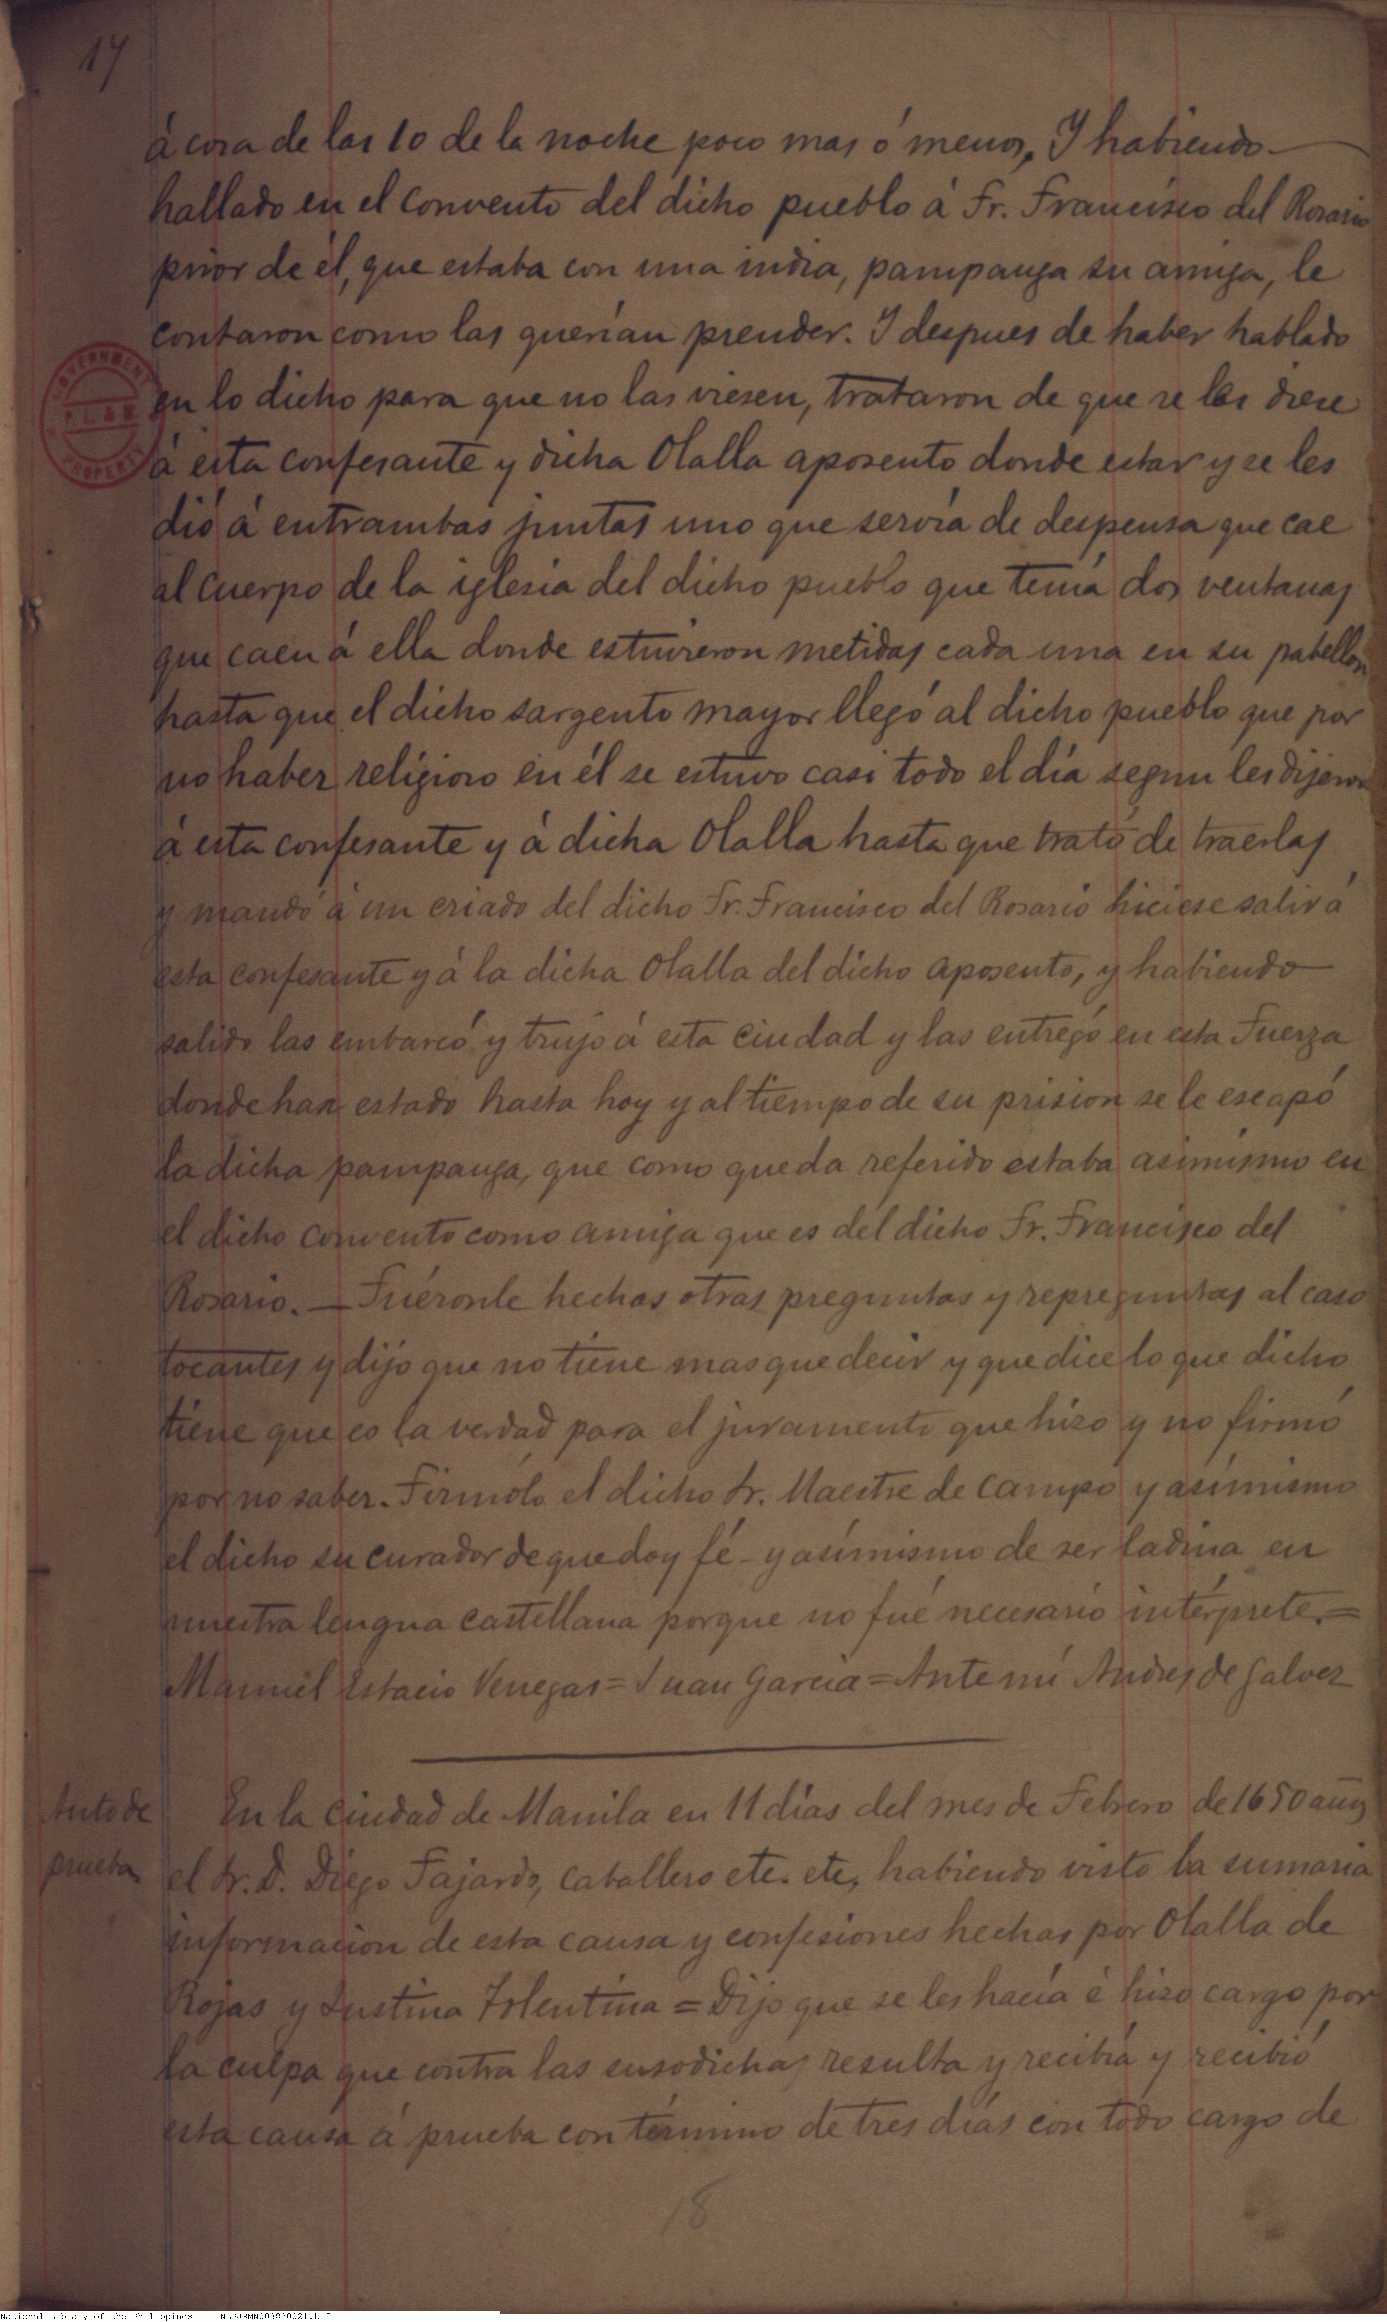 17
á cosa de las 10 de la noche poco mas ó menos, Y habiendo
hallado en el convento del dicho pueblo á Fr. Francisco del Rosario
prior de él, que estaba con una india, pampanga su amiga, le
contaron como las querían prender. Y despues de haber hablado
en lo dicho para que no las viesen, trataron de que se les diese
á esta confesante y dicha Olalla aposento donde estar y se les
dió á entrambas juntas uno que servía de despensa que cae
al cuerpo de la iglesia del dicho pueblo que tenía dos ventanas
que caen á ella donde estuvieron metidas cada una en su pabellon
hasta que el dicho sargento mayor llegó al dicho pueblo que por
no haber religioso en él se estuvo casi todo el día segun les dijeron
á esta confesante y á dicha Olalla hasta que trató de traerlas
y mandó á un criado del dicho Fr. Francisco del Rosario hiciese salir á
esta confesante y á la dicha Olalla del dicho aposento, y habiendo
salido las embarcó y trujo á esta ciudad y las entregó en esta Fuerza
donde han estado hasta hoy y al tiempo de su prision se le escapó
la dicha pampanga, que como queda referido estaba asimismo en
el dicho convento como amiga que es del dicho Fr. Francisco del
Rosario. — Fuéronle hechas otras preguntas y repreguntas al caso
tocantes y dijo que no tiene mas que decir y que dice lo que dicho
tiene que es la verdad para el juramento que hizo y no firmó
por no saber. Firmólo el dicho Sr. Maestre de Campo y asímismo
el dicho su curador de que doy fé - y asímismo de ser ladina en
nuestra lengua castellana porque no fué necesario intérprete. =
Manuel Estacio Venegas = Juan Garcia = Ante mí Andres de Galvez
Auto de
prueba
En la Ciudad de Manila en 11 días del mes de Febrero de 1650 años
el Sr. D. Diego Fajardo, caballero etc. etc, habiendo visto la sumaria
informacion de esta causa y confesiones hechas por Olalla de
Rojas y Justina Tolentina = Dijo que se les hacía é hizo cargo por
la culpa que contra las susodichas resulta y recibía y recibió
esta causa á prueba con término de tres días con todo cargo de
18
GOVERNMENT
P.L.&M.
PROPERTY
National Library of the Philippines